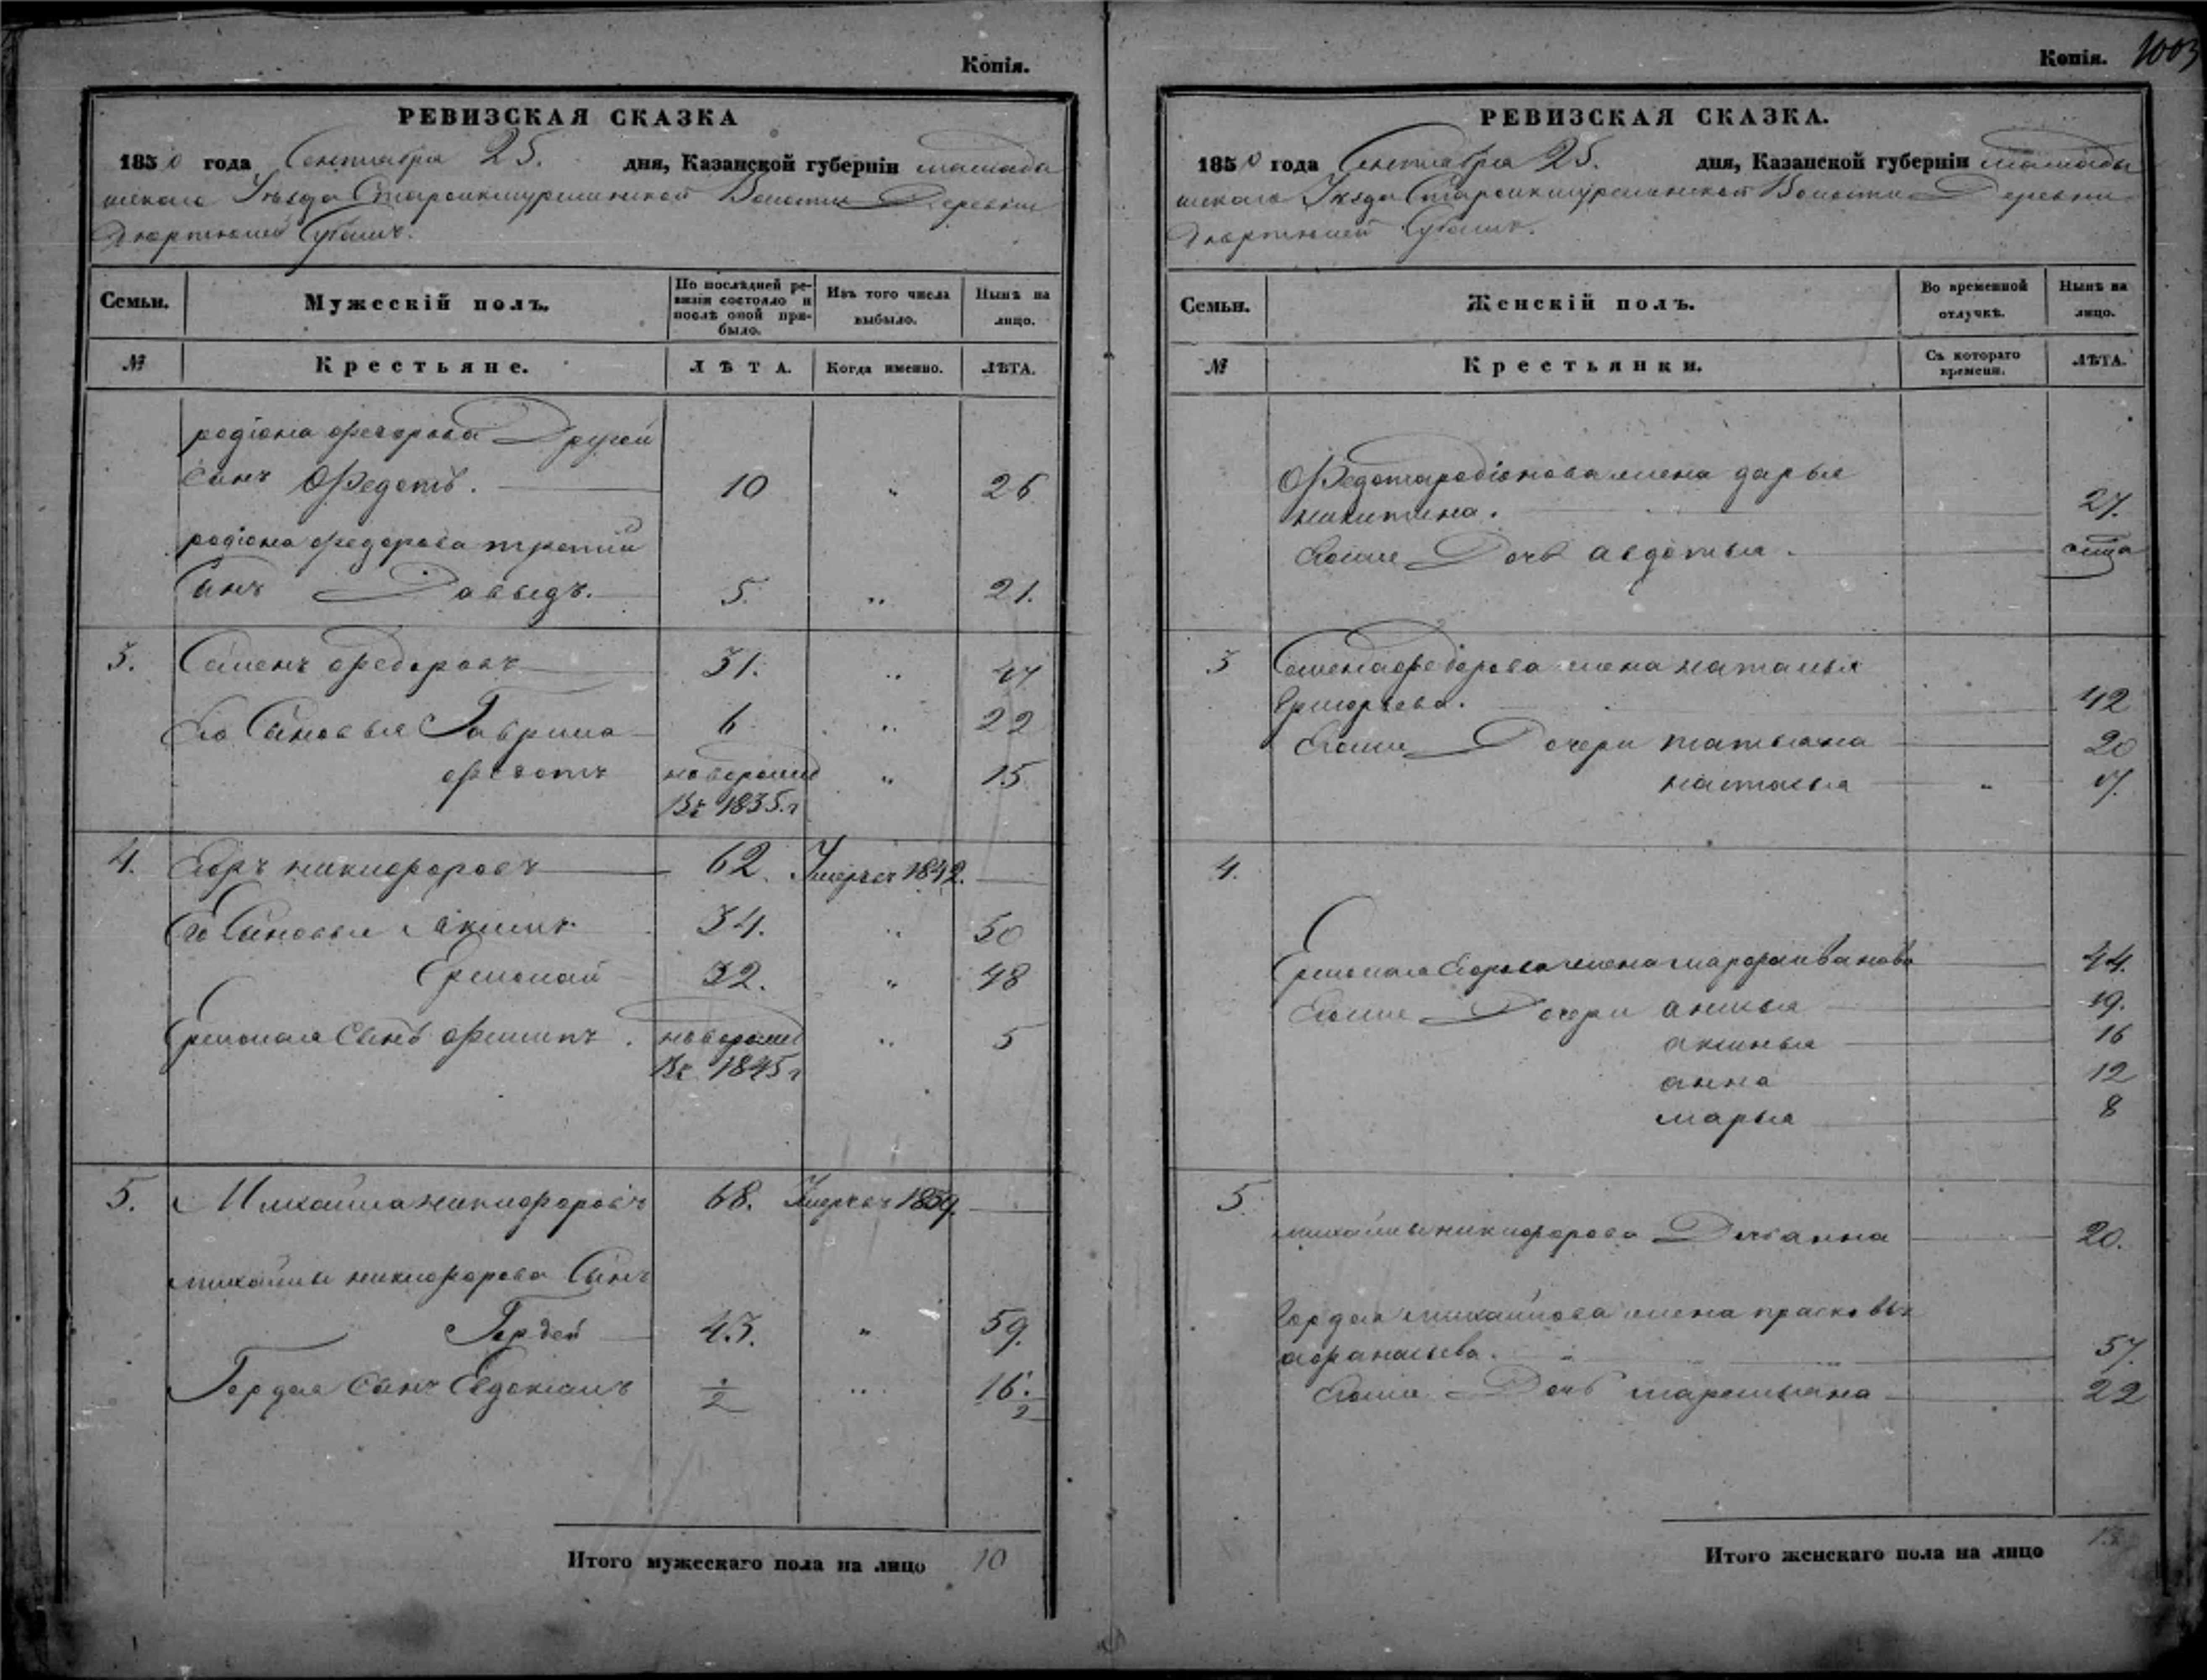 Копія.
РЕВИЗСКАЯ СКАЗКА
1850 года Сентября 25. дня, Казанской губерніи мамады
шскаго Уѣзда Староикшурминской Волости Деревни
Дюртюлей Субашъ.
Семьи. Мужескій полъ. По послѣдней ревизіи состояло и послѣ оной прибыло. Изъ того числа выбыло. Нынѣ на лицо.
№ Крестьяне. ЛѢТА. Когда именно. ЛѢТА.
родіона федорова Другой
сынъ Федотъ. 10 „ 26
родіона федорова третій
Сынъ Давыдъ. 5. „ 21.
3. Семенъ федоровъ 31. „ 47
Его Сыновья Гаврила 6 „ 22
федотъ новорожд „ 15
Въ 1835.г
4. Егоръ никифоровъ 62. Умеръ въ 1842.
Его Сыновья Акимъ 34. „ 50
Ермолай 32. „ 48
Ермолая Сынъ филипъ. новорожд „ 5
Въ 1845г
5. Михайла никифоровъ 68. Умеръ въ 1839.
михайлы никифорова Сынъ
Гордей 43. „ 59.
Гордея Сынъ Евдокимъ 1/2 „ 16. 1/2
Итого мужескаго пола на лицо 10
Копія. 1003
РЕВИЗСКАЯ СКАЗКА.
1850 года Сентября 25. дня, Казанской губерніи мамады
шскаго Уѣзда Староикшурминской Волости Деревни
Дюртюлей Субашъ.
Семьи. Женскій полъ. Во временной отлучкѣ. Нынѣ на лицо.
№ Крестьянки. Съ котораго времени. ЛѢТА.
Федота родіонова жена дарья
никитина. 27.
Егоже Дочь авдотья.
3 Семена федорова жена наталья
Григорьева. 42
Егоже Дочери татьяна 20
настасья „ 7.
4.
Ермолая Егорова жена марфа иванова 44.
Егоже Дочери 19.
аксинья 16
анна 12
марья 8
5. михайлы никифорова Дочь анна 20.
Гордея михайлова жена прасковья
афанасьева. 57.
Егоже Дочь маремьяна 22
Итого женскаго пола на лицо 13